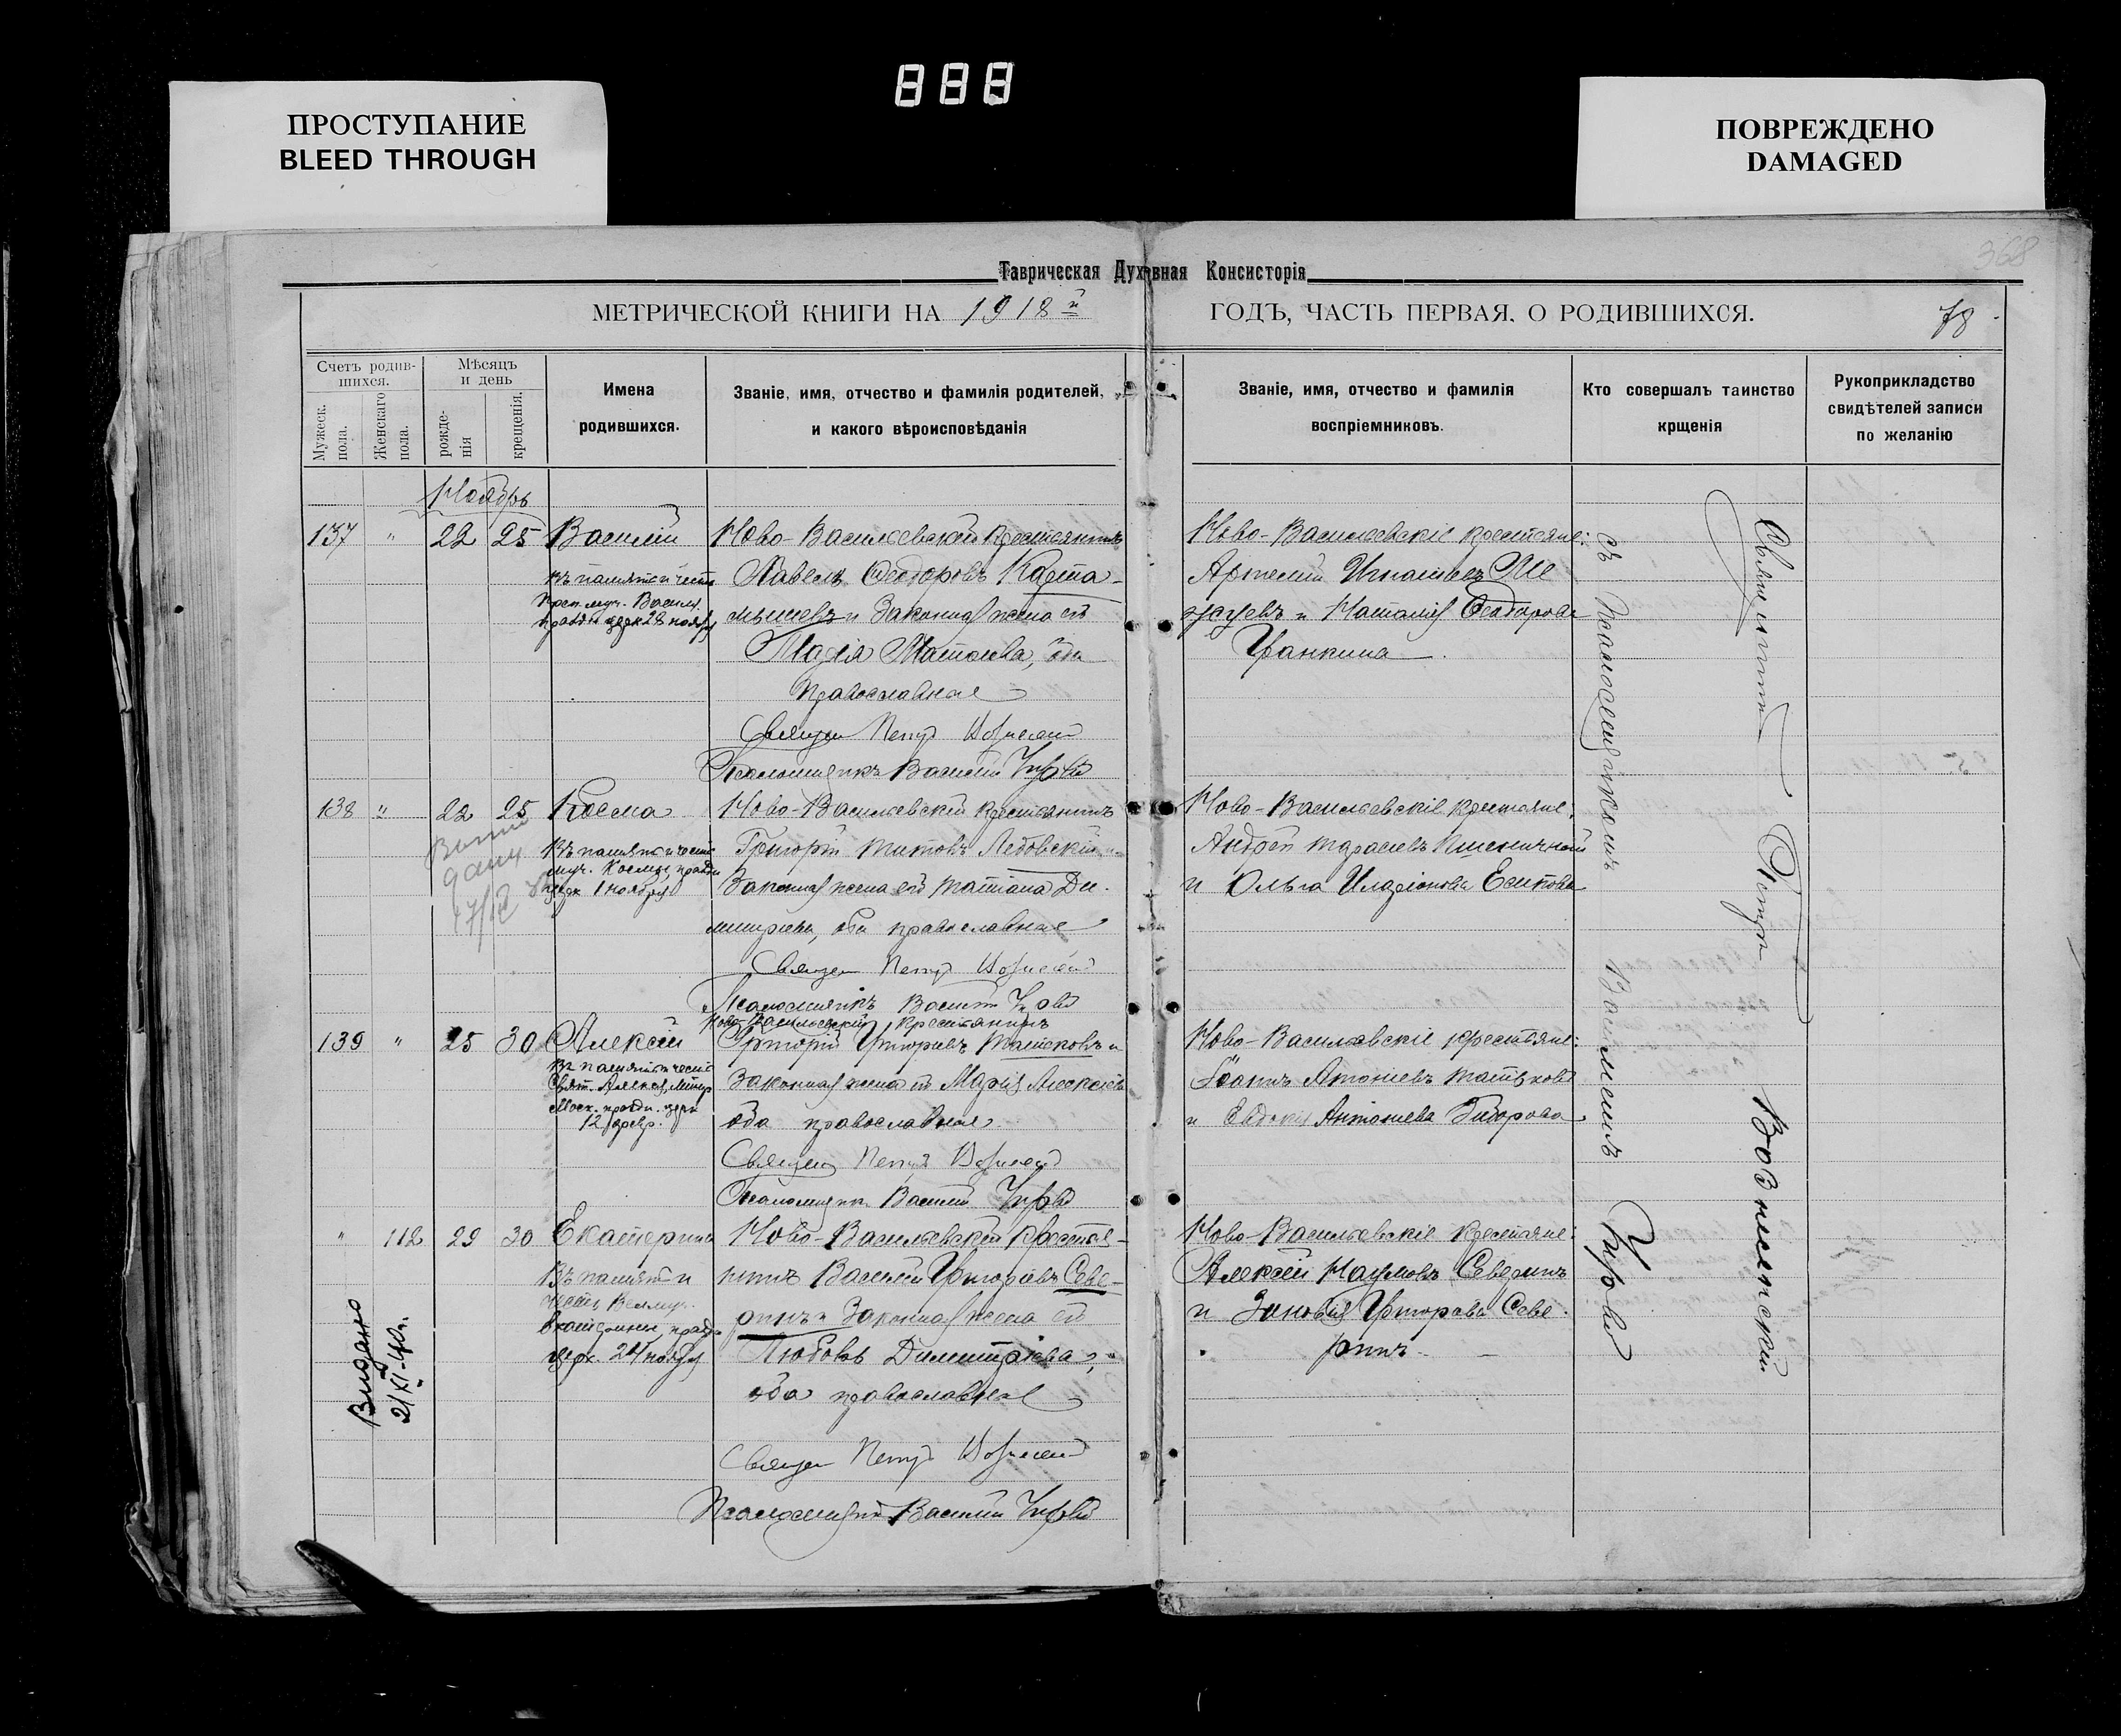 888
ПРОСТУПАНИЕ
BLEED THROUGH
ПОВРЕЖДЕНО
DAMAGED
368
Таврическая Духовная Консисторія
МЕТРИЧЕСКОЙ КНИГИ НА 1918й ГОДЪ, ЧАСТЬ ПЕРВАЯ, О РОДИВШИХСЯ.
78
Счетъ родив-
шихся.
Мужеск.
пола.
Женскаго
пола.
Мѣсяцъ
и день
рожде-
нія
крещенія.
Имена
родившихся.
Званіе, имя, отчество и фамилія родителей,
и какого вѣроисповѣданія
Званіе, имя, отчество и фамилія
воспріемниковъ.
Кто совершалъ таинство
крщенія
Рукоприкладство
свидѣтелей записи
по желанію
Ноябрь
137 " 22 25 Василій
Въ память и честь
муч. Васил.
празд. церк. 28 ноября
Ново-Васильевскій крестьянинъ
Павелъ Ѳеодоровъ Карта-
мышевъ и законная жена его
Марія Матѳеева, оба
православные
Священ Петръ Вознесен
Псаломщикъ Василій
Ново-Васильевскіе крестьяне:
Артемій Игнатьевъ Ше
и Наталія Ѳеодорова
138 " 22 25 Косма
Въ память и честь
муч. Космы, праздн
церк. 1 ноября
Ново-Васильевскій крестьянинъ
Григорій Титовъ Ледовскій и
Законная жена его Татіана Ди-
митріева, оба православные
Священ Петръ Вознесен
Псаломщикъ Василій
Ново-Васильевскіе крестьяне:
Андрей Тарасіевъ Пшеничный
и Ольга Иларіонова Есипова
139 " 25 30 Алексій
Въ память и честь
Свят. Алексія, Митр
Моск. праздн. церк
12 февр.
Ново-Васильевскій крестьянинъ
Григорій Григорьевъ и
Законная жена его Марія Алексіева
оба православные
Священ Петръ Вознесен
Псаломщикъ Василій
Ново-Васильевскіе крестьяне:
Іоаннъ
и Евдокія Антоніева
" 112 29 30 Екатерина
Въ память и
честь Велмуч.
Екатерины, празд.
церк. 24 ноября
Ново-Васильевскій крестья-
нинъ Василій Григоріевъ Севе-
ринъ и Законная жена его
Любовь Димитріева,
оба православные
Священ Петръ Вознесен
Псаломщикъ Василій
Ново-Васильевскіе крестьяне:
Алексій Наумовъ Северинъ
и Зиновія Григорьева Севе-
ринъ
Видано
21/XI-40г.
Священникъ Петръ Вознесенскій
съ псаломщикомъ Василіемъ